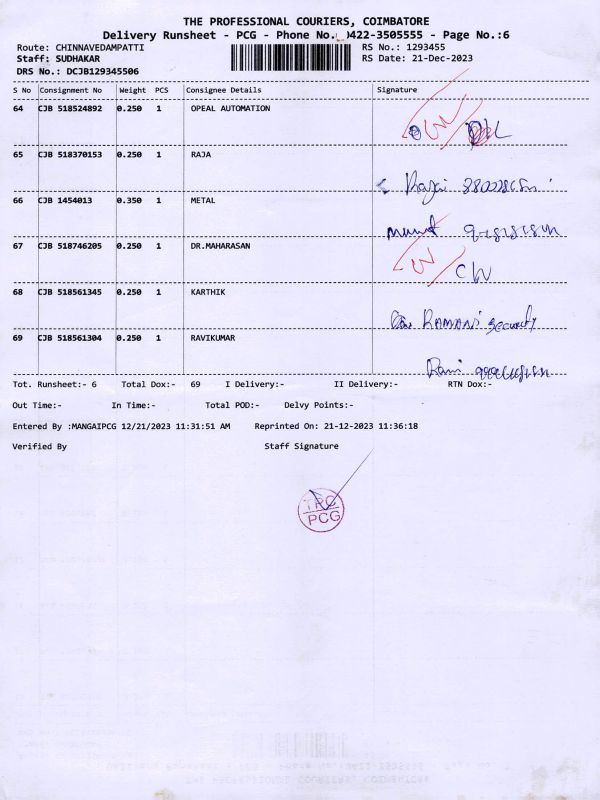 THE PROFESSIONAL COURIERS, COIMBATORE
Delivery Runsheet - PCG - Phone No.: 0422-3505555 - Page No.:6
Route: CHINNAVEDAMPATTI RS No.: 1293455
Staff: SUDHAKAR RS Date: 21-Dec-2023
DRS No.: DCJB129345506
S No Consignment No Weight PCS Consignee Details Signature
64 CJB 518524892 0.250 1 OPEAL AUTOMATION
65 CJB 518370153 0.250 1 RAJA
66 CJB 1454013 0.350 1 METAL
67 CJB 518746205 0.250 1 DR.MAHARASAN
68 CJB 518561345 0.250 1 KARTHIK
RAMANI security
69 CJB 518561304 0.250 1 RAVIKUMAR
Tot. Runsheet:- 6 Total Dox:- 69 I Delivery:- II Delivery:- RTN Dox:-
Out Time:- In Time:- Total POD:- Delvy Points:-
Entered By :MANGAIPCG 12/21/2023 11:31:51 AM Reprinted On: 21-12-2023 11:36:18
Verified By Staff Signature
PCG